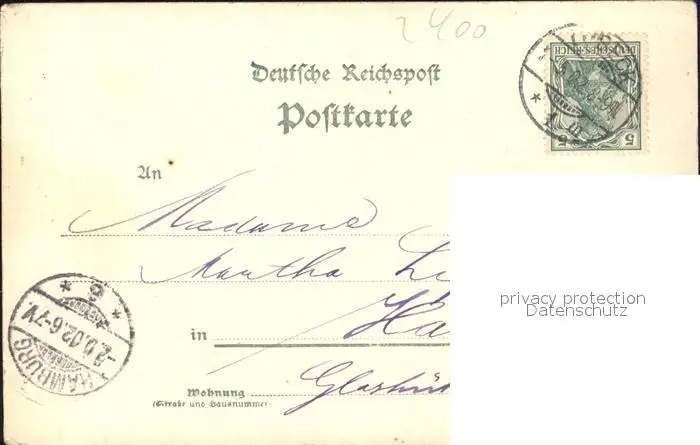 2400
Deutsche Reichspost
Postkarte
DEUTSCHES REICH
5 5
An
Madame
Martha
Ha
in
Wohnung
(Straße und Hausnummer)
HAMBURG
-2.5.02.6-7V.
privacy protection
Datenschutz